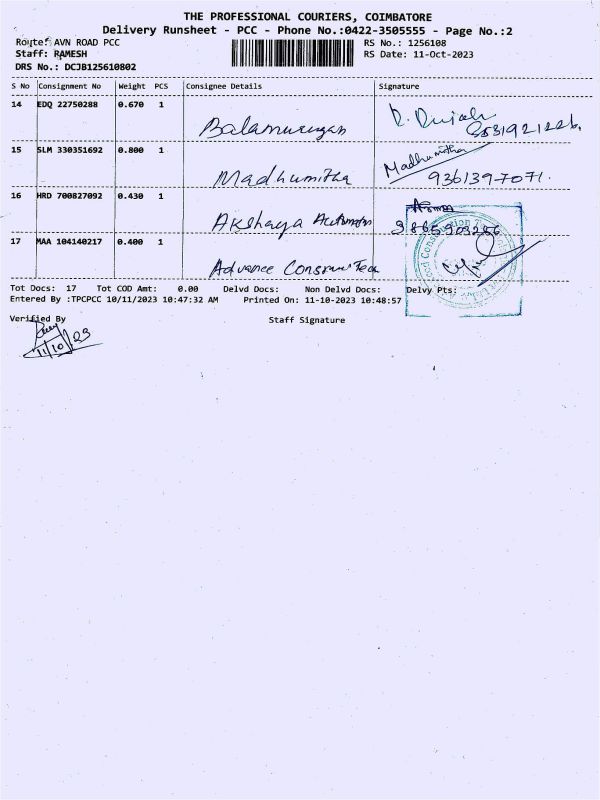 THE PROFESSIONAL COURIERS, COIMBATORE
Delivery Runsheet - PCC - Phone No.:0422-3505555 - Page No.:2
Route: AVN ROAD PCC RS No.: 1256108
Staff: RAMESH RS Date: 11-Oct-2023
DRS No.: DCJB125610802
S No Consignment No Weight PCS Consignee Details Signature
14 EDQ 22750288 0.670 1 Balamurugan
15 SLM 330351692 0.800 1 Madhumitha Madhumitha 9361397071.
16 HRD 700827092 0.430 1 Akshaya Automation
17 MAA 104140217 0.400 1 Advance
Tot Docs: 17 Tot COD Amt: 0.00 Delvd Docs: Non Delvd Docs: Delvy Pts:
Entered By :TPCPCC 10/11/2023 10:47:32 AM Printed On: 11-10-2023 10:48:57
Verified By Staff Signature
11/10/23